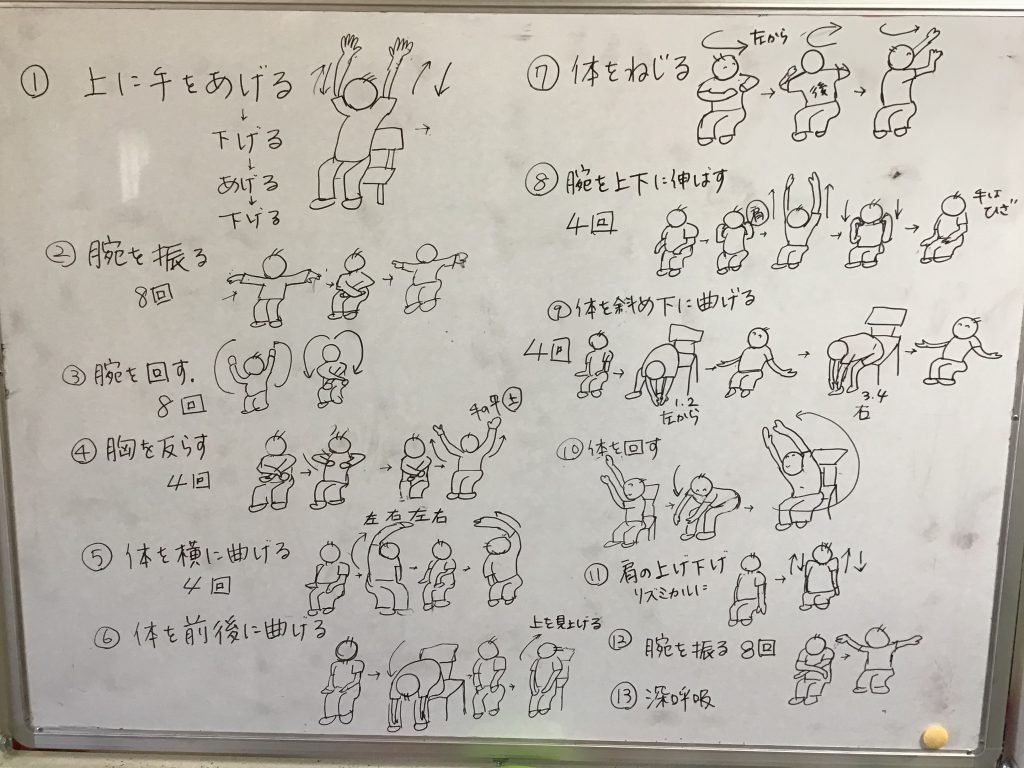 ① 上に手をあげる
下げる
あげる
下げる
② 腕を振る
8回
③ 腕を回す.
8回
④ 胸を反らす
4回
手の甲㊤
⑤ 体を横に曲げる
4回
左 右 左 右
⑥ 体を前後に曲げる
上を見上げる
⑦ 体をねじる
左から
後
⑧ 腕を上下に伸ばす
4回
肩
手は
ひざ
⑨ 体を斜め下に曲げる
4回
1.2
左から
3.4
右
⑩ 体を回す
⑪ 肩の上げ下げ
リズミカルに
⑫ 腕を振る 8回
⑬ 深呼吸